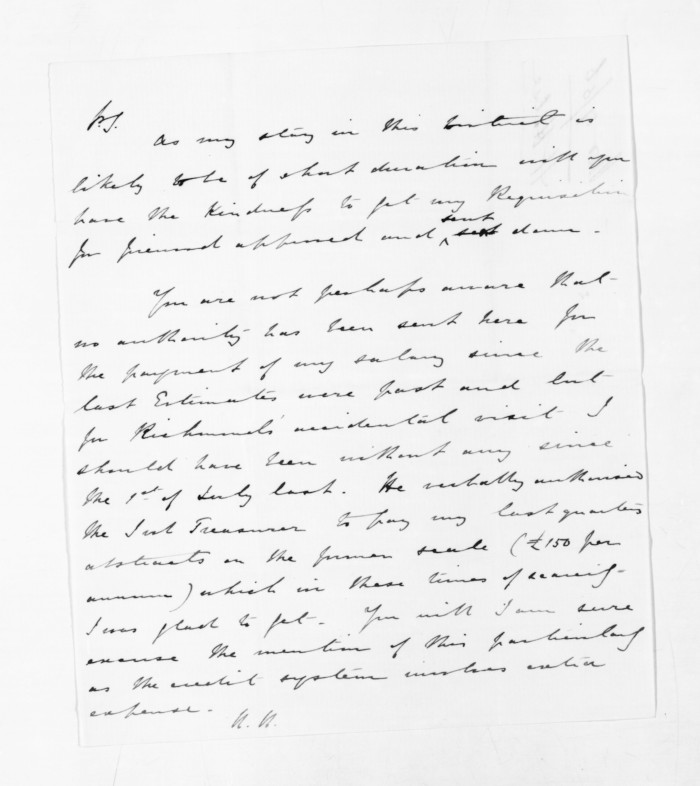 P.S.
As my stay in this District is
likely to be of short duration will you
have the Kindness to get my Requisition
for firewood approved and sent down.
You are not perhaps aware that
no authority has been sent here for
the payment of my salary since the
last Estimates were past and but
for Richmond's accidental visit I
should have been without any since
the 1st of July last. He verbally authorised
the Sub Treasurer to pay my last quarters
abstracts on the former scale (£150 per
annum) which in these times of scarcity
I was glad to get. You will I am sure
excuse the mention of this particularly
as the credit system involves extra
expense.